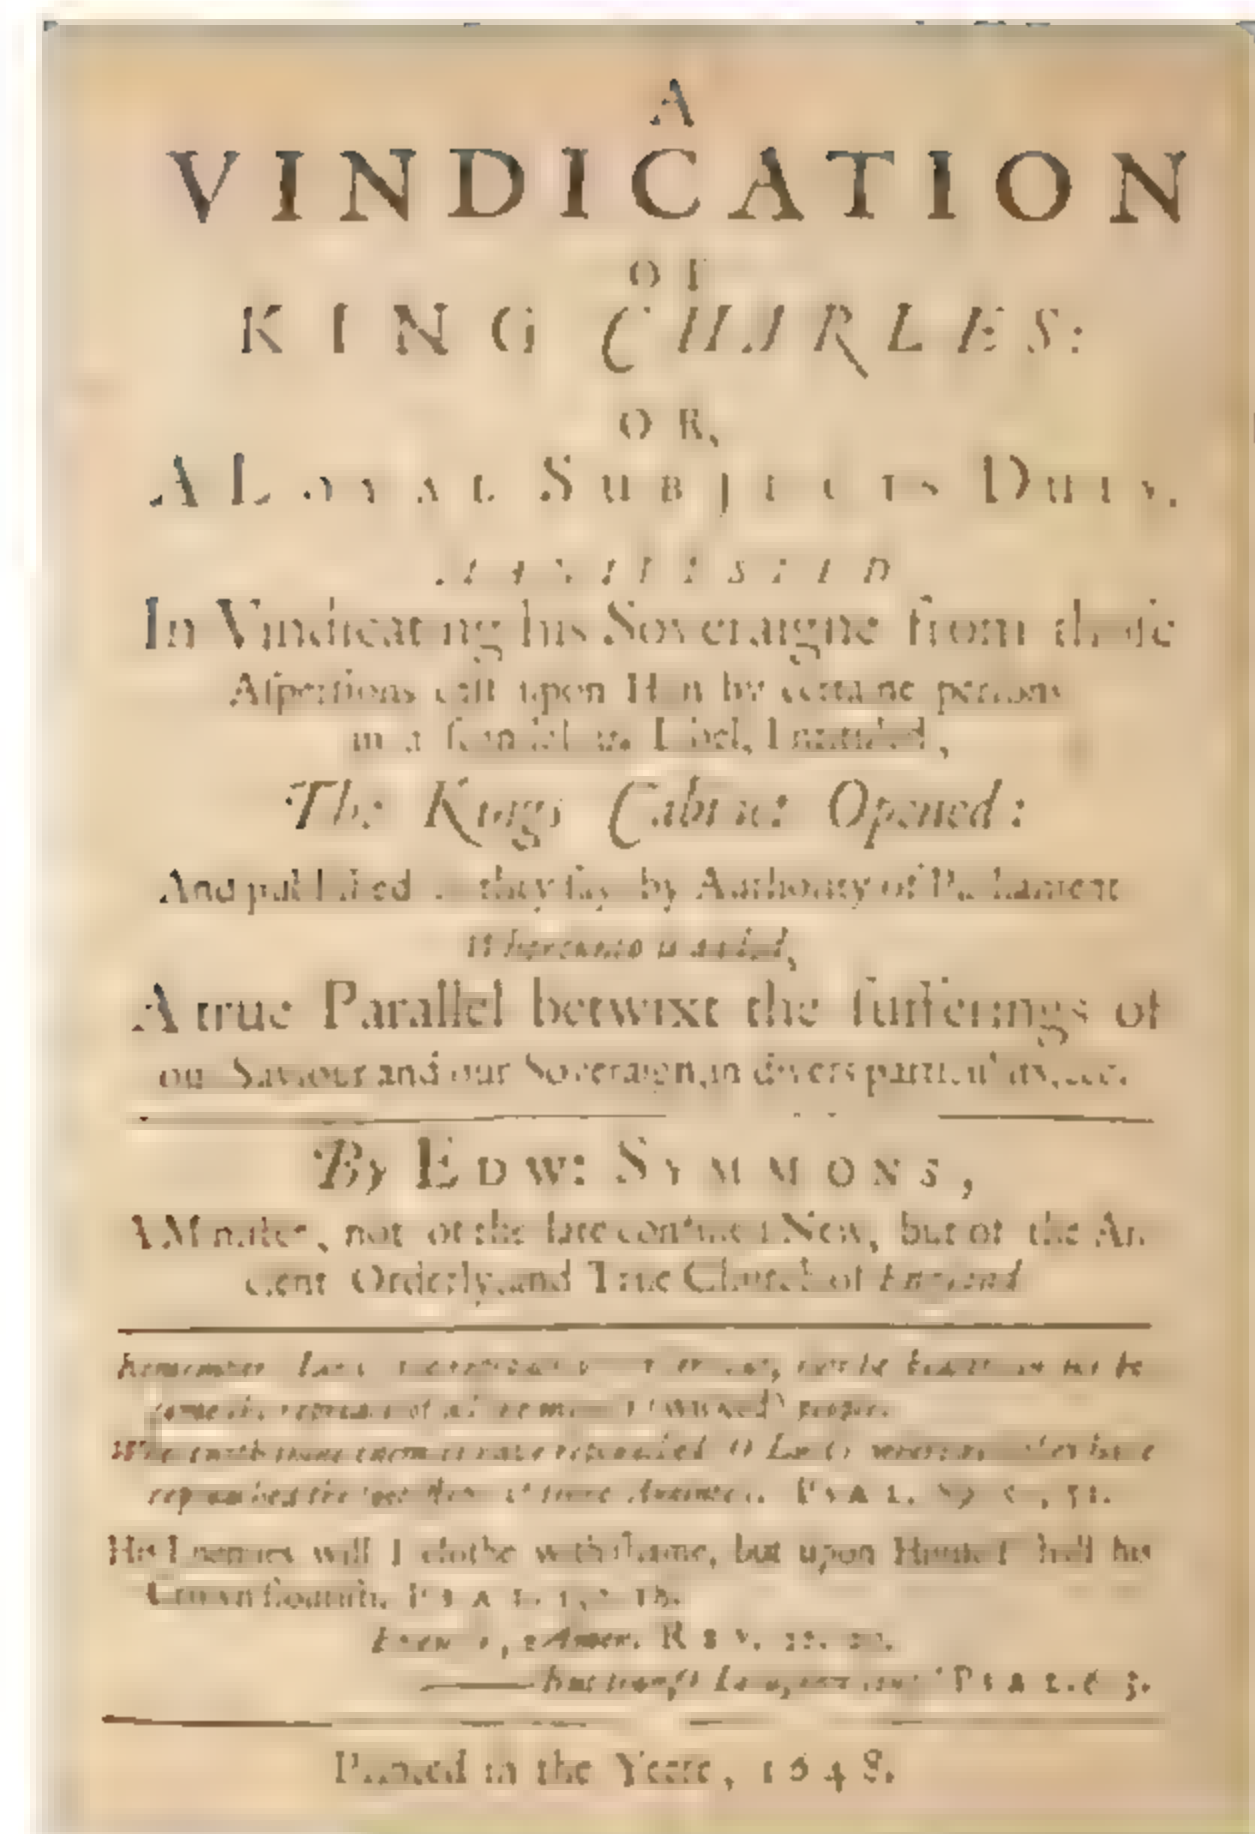 A
VINDICATION
OF
KING CHARLES:
OR,
A LOYAL SUBJECTS DUTY.
MANIFESTED
In Vindicating his Soveraigne from those
Aspersions cast upon Him by certaine persons
in a scandalous Libel, Intituled,
The Kings Cabinet Opened:
And published as they say by Authority of Parliament
Whereunto is added,
A true Parallel betwixt the sufferings of
our Saviour and our Soveraign, in divers particulars, &c.
By EDW: SYMMONS,
A Minister, not of the late confused New, but of the An
cient Orderly, and True Church of England
Remember Lord
the reproach of (wicked) people.
reproached O Lord
reproached the PSAL. 51.
His Enemies will I clothe with shame, but upon Himself shall his
Crown flourish. PSAL. 18.
Amen. REV.
But Lord, PSAL. 6 3.
Printed in the Yeere, 1648.